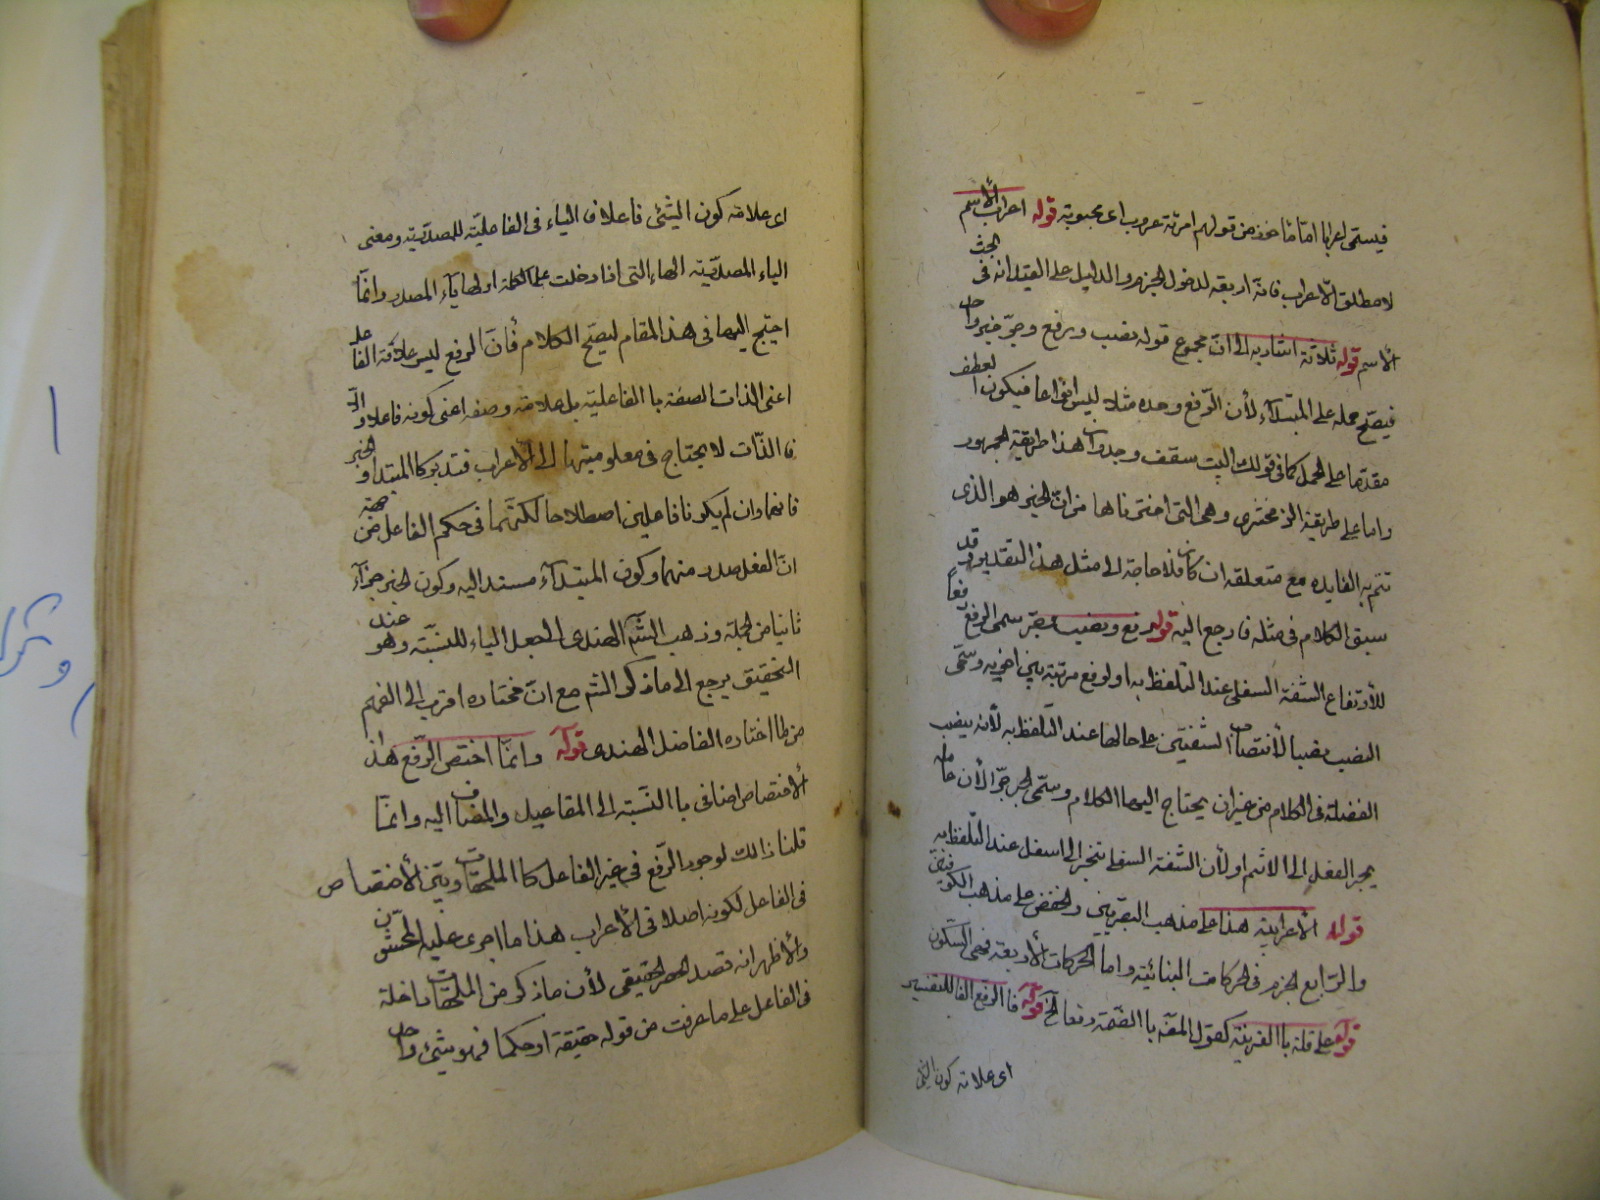 فيسمى اعرابا اما مأخوذ من قولهم امرئة عروب اى محبوبة قوله اعراب الأسم
لا مطلق الأعراب فانه اربعة لدخول الجزم والدليل على القيد انه فى بحث
الأسم قوله ثلاثة اشار به الى ان مجموع قوله نصب ورفع وجر خبر واحد
فيصح حمله على المبتدآء لأن الرفع وحده مثلا ليس انواعا فيكون العطف
مقدما على الحمل كما فى قولك البيت سقف وجدران هذا طريقة الجمهور
واما على طريقة الزمخشرى وهى التى اخترناها من ان الخبر هو الذى
تتم به الفايده مع متعلقه ان كان فلا حاجة الى مثل هذا التقدير وقد
سبق الكلام فى مثله فارجع اليه قوله رفع ونصب وجر سمى الرفع رفعاً
للأرتفاع الشفة السفلى عند التلفظ به او لرفع مرتبة بين اخويه وسمى
النصب نصبا لأنتصاب الشفتين على حالها عند التلفظ به لأنه ينصب
الفضلة فى الكلام من غير ان يحتاج اليها الكلام وسمى الجر جرّا لأن عامله
يجر الفعل الى الاسم او لأن الشفة السفلى تنجر الى اسفل عند التلفظ به
قوله الأعرابية هذا على مذهب البصريين والخفض على مذهب الكوفيين
والرابع الجزم فى الحركات البنائية واما الحركات الأربعة فهى السكون
قوله على قلة با القرينة كقول المص با الضمة رفعا الخ قوله فا الرفع الفا للتفسير
اى علامة كون الشئ
اى علامة كون الشئ فاعلا ف الياء فى الفاعلية للمصدرية ومعنى
الياء المصدرية الهاء التى اذا دخلت على الكلمة اولها يآء المصدر وانما
احتيج اليها فى هذا المقام ليصح الكلام فأن الرفع ليس علامة الفاعل
اعنى الذات الصفة با الفاعلية بل علامة وصفه اعنى كونه فاعلا و الا
فا الذات لا يحتاج فى معلوميتها الى الأعراب فتدبر كا المبتدا و الخبر
فانهما وان لم يكونا فاعلين اصطلاحا لكنهما فى حكم الفاعل من جهة
ان الفعل صدر منهما وكون المبتدآء مسندا اليه وكون الخبر جزآء
ثانيا من الجملة وذهب الشم الهندى الجعل الياء للنسبة وهو عند
التحقيق يرجع الى ما ذكر الشم مع ان مختاره اقرب الى الفهم
من ما اختاره الفاضل الهندى قوله وانما اختص الرفع هذا
الأختصاص اضافى با النسبة الى المفاعيل والمضاف اليه وانما
قلنا ذالك لوجود الرفع فى غير الفاعل كا الملحقات وبين الأختصاص
فى الفاعل لكونه اصلا فى الأعراب هذا ما اجرى عليه المحشون
والأظهر انه قصد الحصر الحقيقى لأن ما ذكر من الملحقات داخلة
فى الفاعل على ما عرفت من قوله حقيقة او حكما فهو شئ واحد